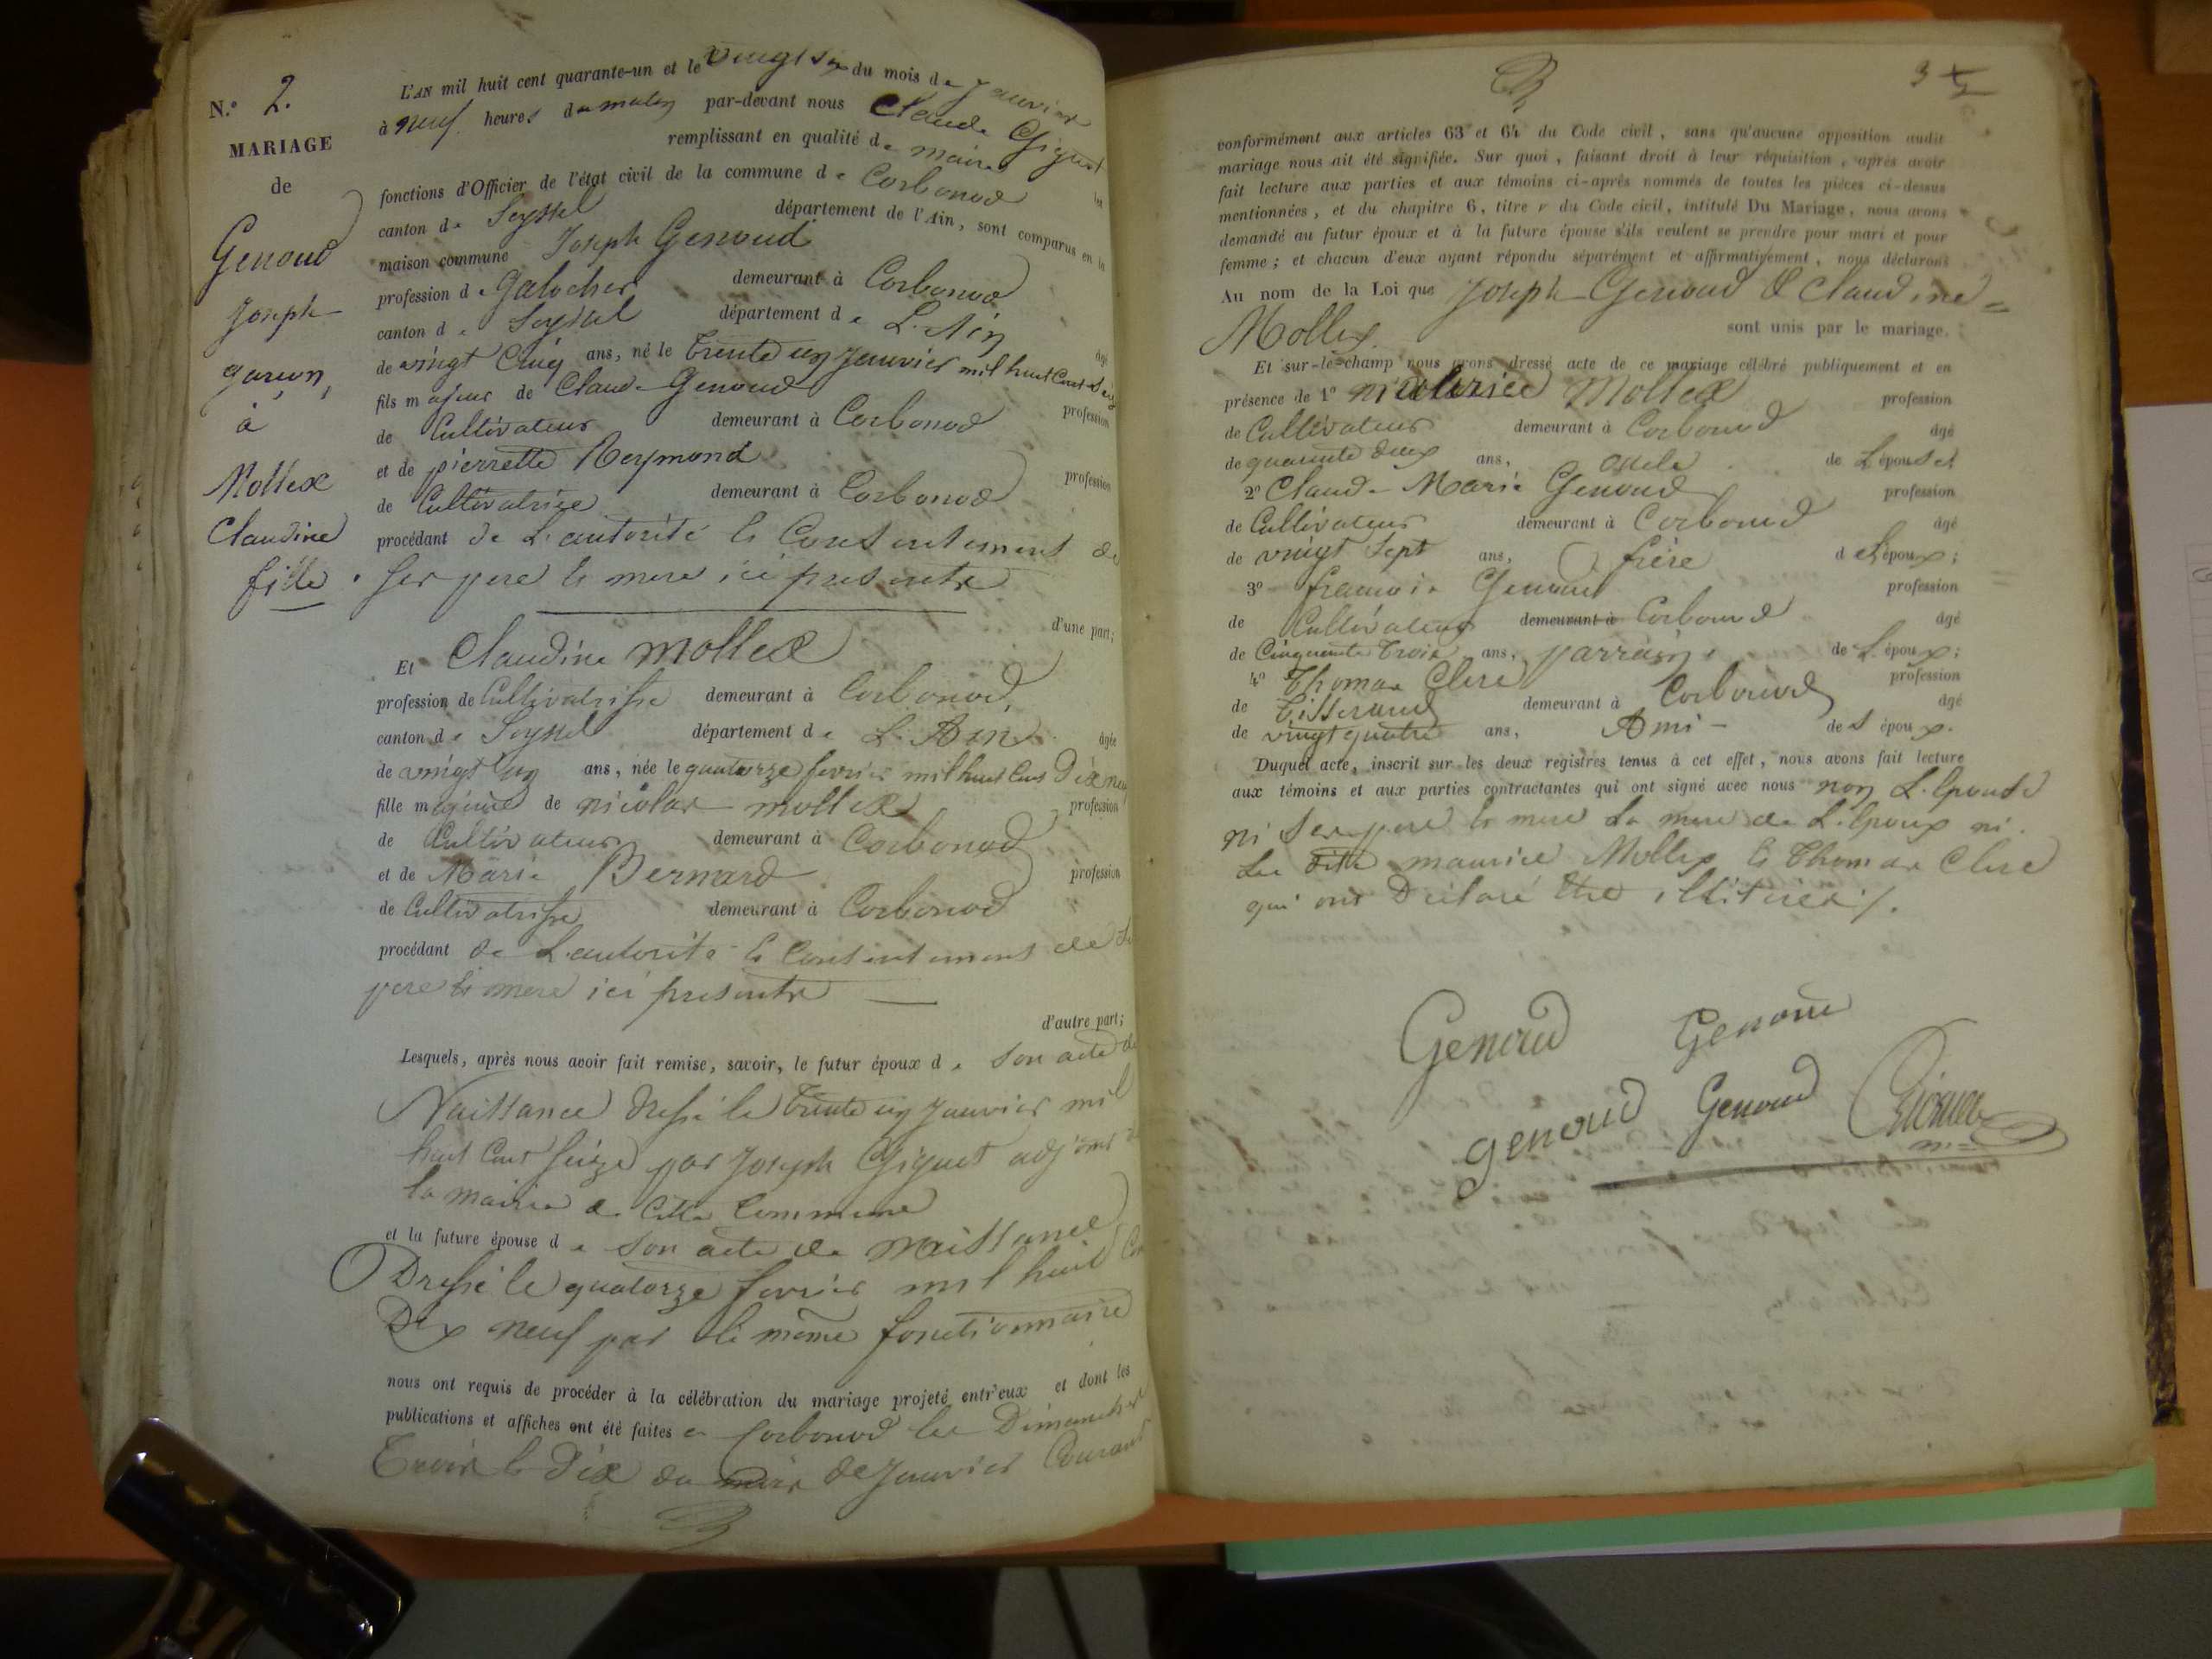 N.° 2.
MARIAGE
de
Genoud
Joseph
garçon
à
Mollex
Claudine
fille
L'AN mil huit cent quarante-un et le vingt six du mois de Janvier
à neuf heures du matin par-devant nous Claude Giguet
remplissant en qualité de maire les
fonctions d'Officier de l'état civil de la commune de Corbonod
canton de Seyssel département de l'Ain, sont comparus en la
maison commune Joseph Genoud
profession de Galocher demeurant à Corbonod
canton de Seyssel département de L'Ain âgé
de vingt Cinq ans, né le trente un Janvier mil huit Cent Seize
fils majeur de Claude Genoud profession
de Cultivateur demeurant à Corbonod
et de pierrette Reymond profession
de Cultivatrice demeurant à Corbonod
procédant de L'autorité & Consentement de
ses pere & mere ici presents
d'une part;
Et Claudine mollex
profession de Cultivatrisse demeurant à Corbonod,
canton de Seyssel département de L'Ain âgée
de vingt un ans, née le quatorze fevrier mil huit Cent Dix neuf
fille majeure de nicolas mollex profession
de Cultivateur demeurant à Corbonod
et de Marie Bernard profession
de Cultivatrisse demeurant à Corbonod
procédant de L'autorité & Consentement de Ses
pere & mere ici presents
d'autre part;
Lesquels, après nous avoir fait remise, savoir, le futur époux de son acte de
Naissance Dressé le trente un Janvier mil
huit Cent Seize par Joseph Giguet adjoint à
la mairie de Cette Commune
et la future épouse de son acte de Naissance
Dressé le quatorze fevrier mil huit Cent
Dix neuf par le même fonctionnaire
nous ont requis de procéder à la célébration du mariage projeté entr'eux et dont les
publications et affiches ont été faites a Corbonod les Dimanches
Trois & Dix du mois de Janvier Courant
3
conformément aux articles 63 et 64 du Code civil, sans qu'aucune opposition audit
mariage nous ait été signifiée. Sur quoi, faisant droit à leur réquisition, après avoir
fait lecture aux parties et aux témoins ci-après nommés de toutes les pièces ci-dessus
mentionnées, et du chapitre 6, titre v du Code civil, intitulé Du Mariage, nous avons
demandé au futur époux et à la future épouse s'ils veulent se prendre pour mari et pour
femme; et chacun d'eux ayant répondu séparément et affirmativement, nous déclarons
Au nom de la Loi que Joseph Genoud & Claudine
Mollex sont unis par le mariage.
Et sur-le-champ nous avons dressé acte de ce mariage célébré publiquement et en
présence de 1° maurice Mollex profession
de Cultivateur demeurant à Corbonod âgé
de quarante deux ans, oncle de L'épouse;
2° Claude Marie Genoud profession
de Cultivateur demeurant à Corbonod âgé
de vingt Sept ans, frère de L'époux;
3° francois Genoud profession
de Cultivateur demeurant à Corbonod âgé
de Cinquante trois ans, parrain de L'époux;
4° Thomas Clerc profession
de tisserand demeurant à Corbonod âgé
de vingt quatre ans, Ami des époux.
Duquel acte, inscrit sur les deux registres tenus à cet effet, nous avons fait lecture
aux témoins et aux parties contractantes qui ont signé avec nous non L'épouse
ni Ses pere & mere La mere de L'époux ni
Les dits maurice Mollex & Thomas Clerc
qui ont Déclaré être illitérés /.
Genoud Genoud
genoud Genoud Giguet